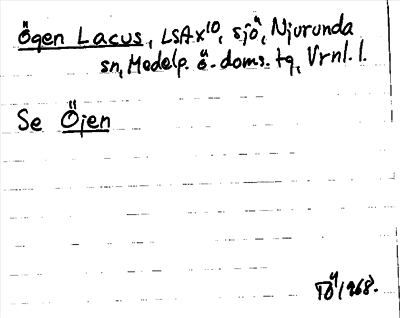 Ögen Lacus, LSA X¹⁰, sjö, Njurunda
sn, Medelp. ö. doms. tg, Vrnl. l.
Se Öjen
TÖ 1968.